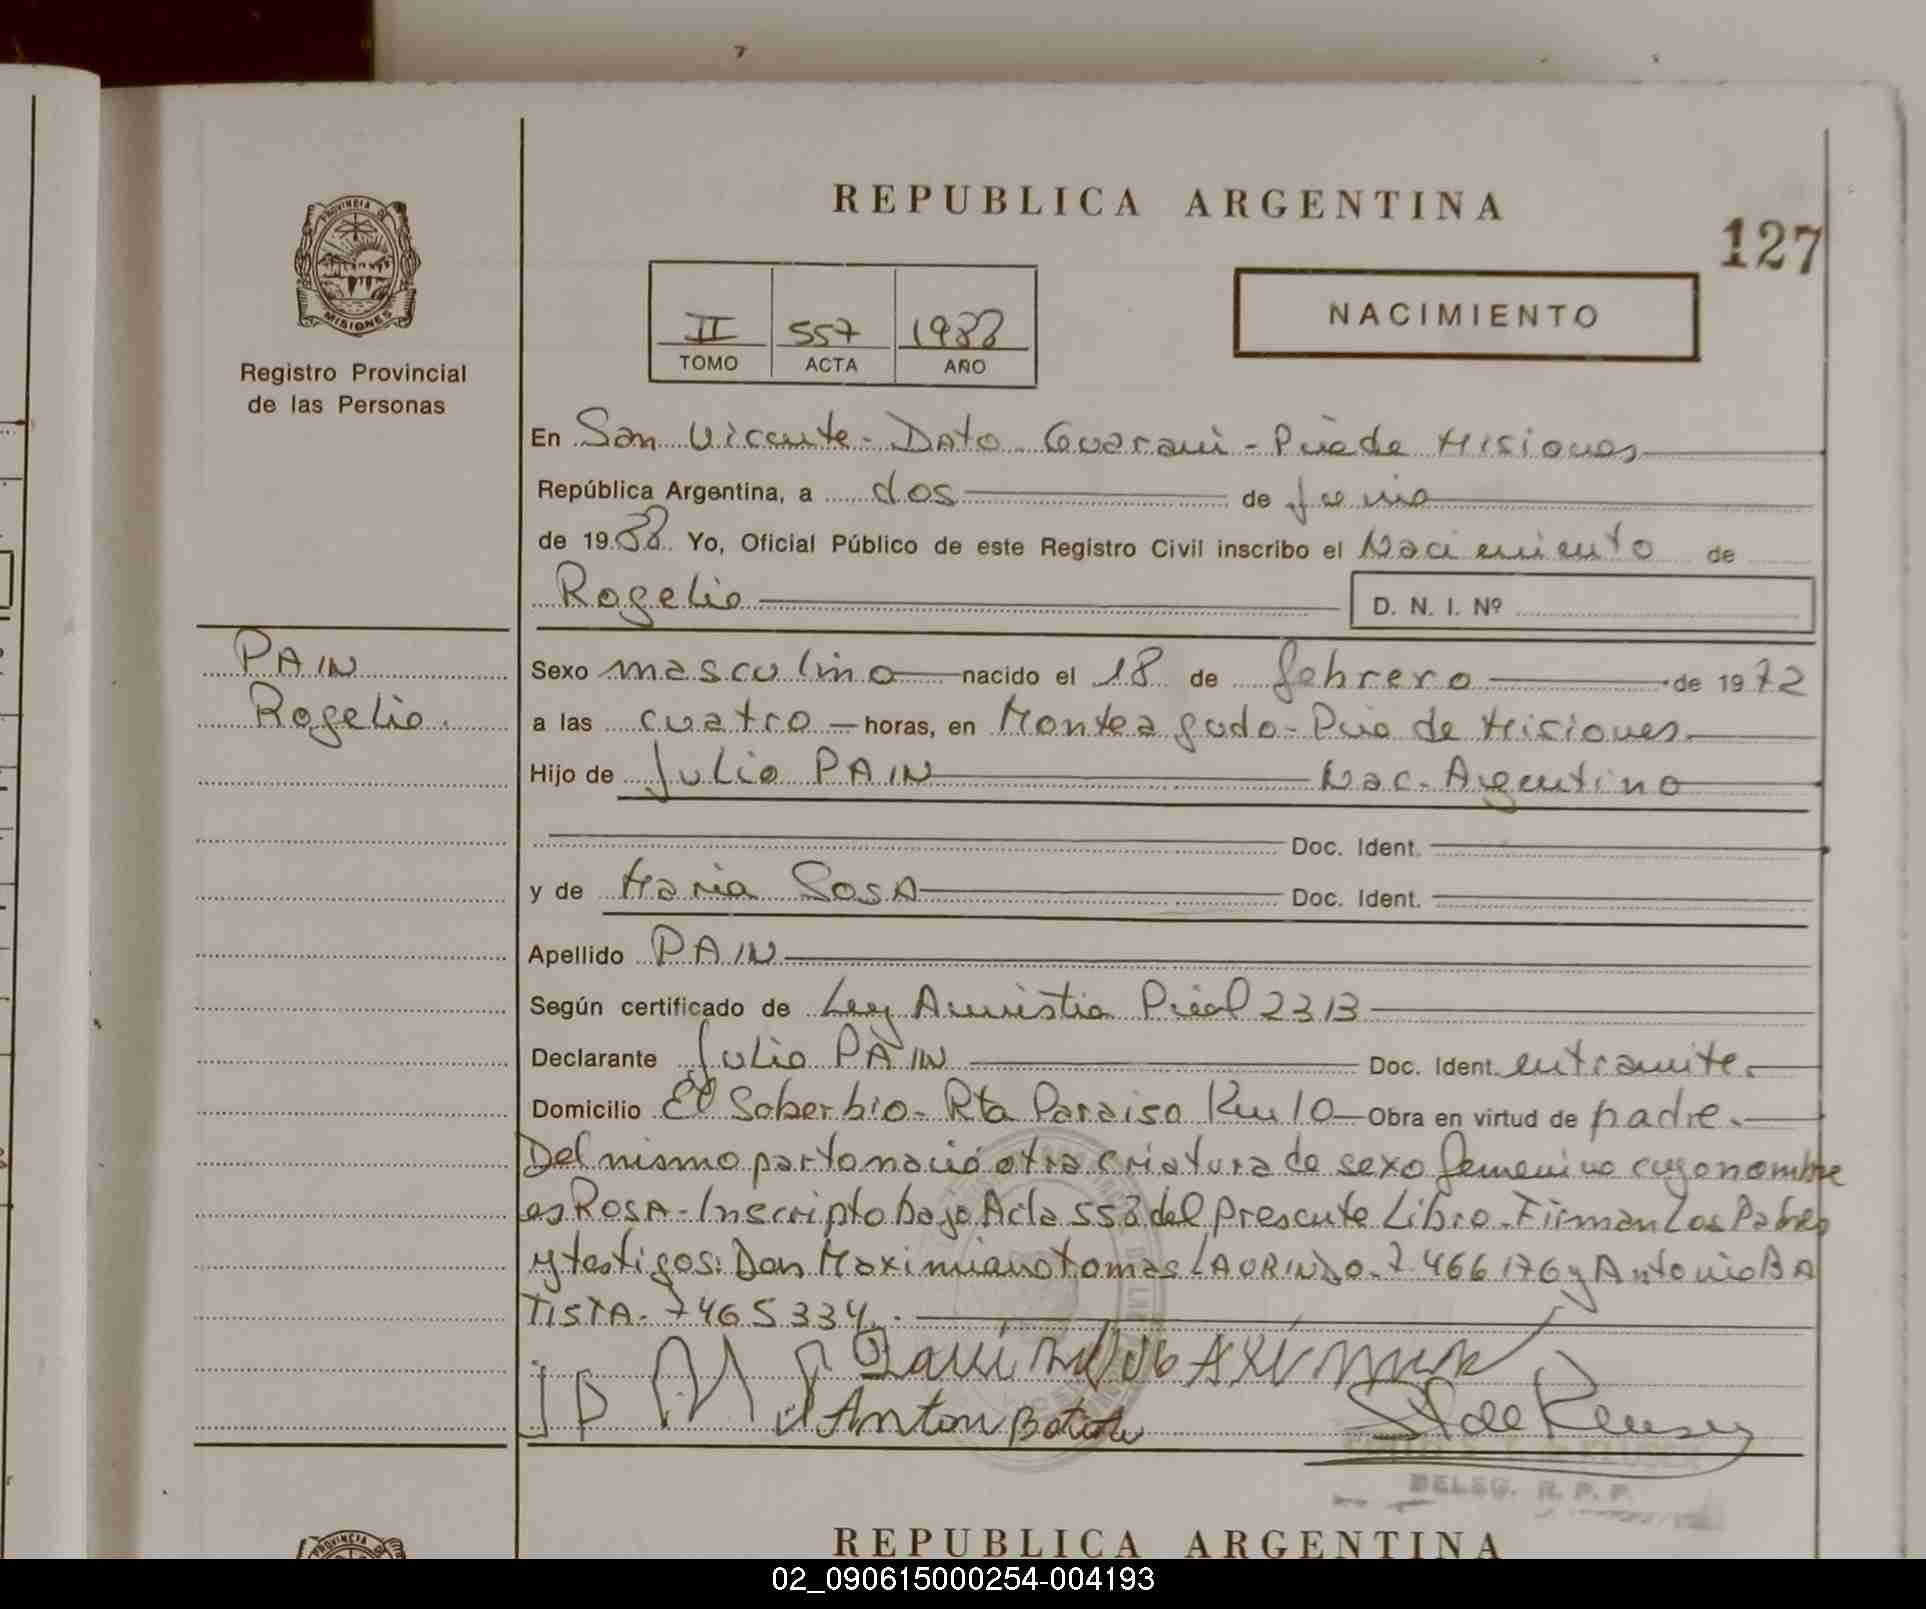 REPUBLICA ARGENTINA
127
PROVINCIA DE
MISIONES
Registro Provincial
de las Personas
II 557 1988
TOMO ACTA AÑO
NACIMIENTO
En San Vicente - Dpto Guarani - Pcia de Misiones
República Argentina, a dos de Junio
de 1988 Yo, Oficial Público de este Registro Civil inscribo el Nacimiento de
Rogelio D. N. I. Nº
PAIN
Rogelio.
Sexo masculino nacido el 18 de febrero de 1972
a las cuatro horas, en Monteagudo - Pcia de Misiones.
Hijo de Julio PAIN Nac. Argentino
Doc. Ident.
y de Maria SOSA Doc. Ident.
Apellido PAIN
Según certificado de Ley Amnistia Pcial 2313
Declarante Julio PAIN Doc. Ident. entramite.
Domicilio El Soberbio - Rta Paraiso Km 10 Obra en virtud de padre.
Del mismo parto nació otra criatura de sexo femenino cuyo nombre
es ROSA - Inscripto bajo Acta 558 del presente Libro. Firman Los Padres
y testigos: Don Maximiano tomas LAURINDO - 7.466176 y Antonio BA
TISTA - 7465334.
JP MS
Anton Batista
DELEG. R. P. P.
PROVINCIA DE
REPUBLICA ARGENTINA
02_090615000254-004193